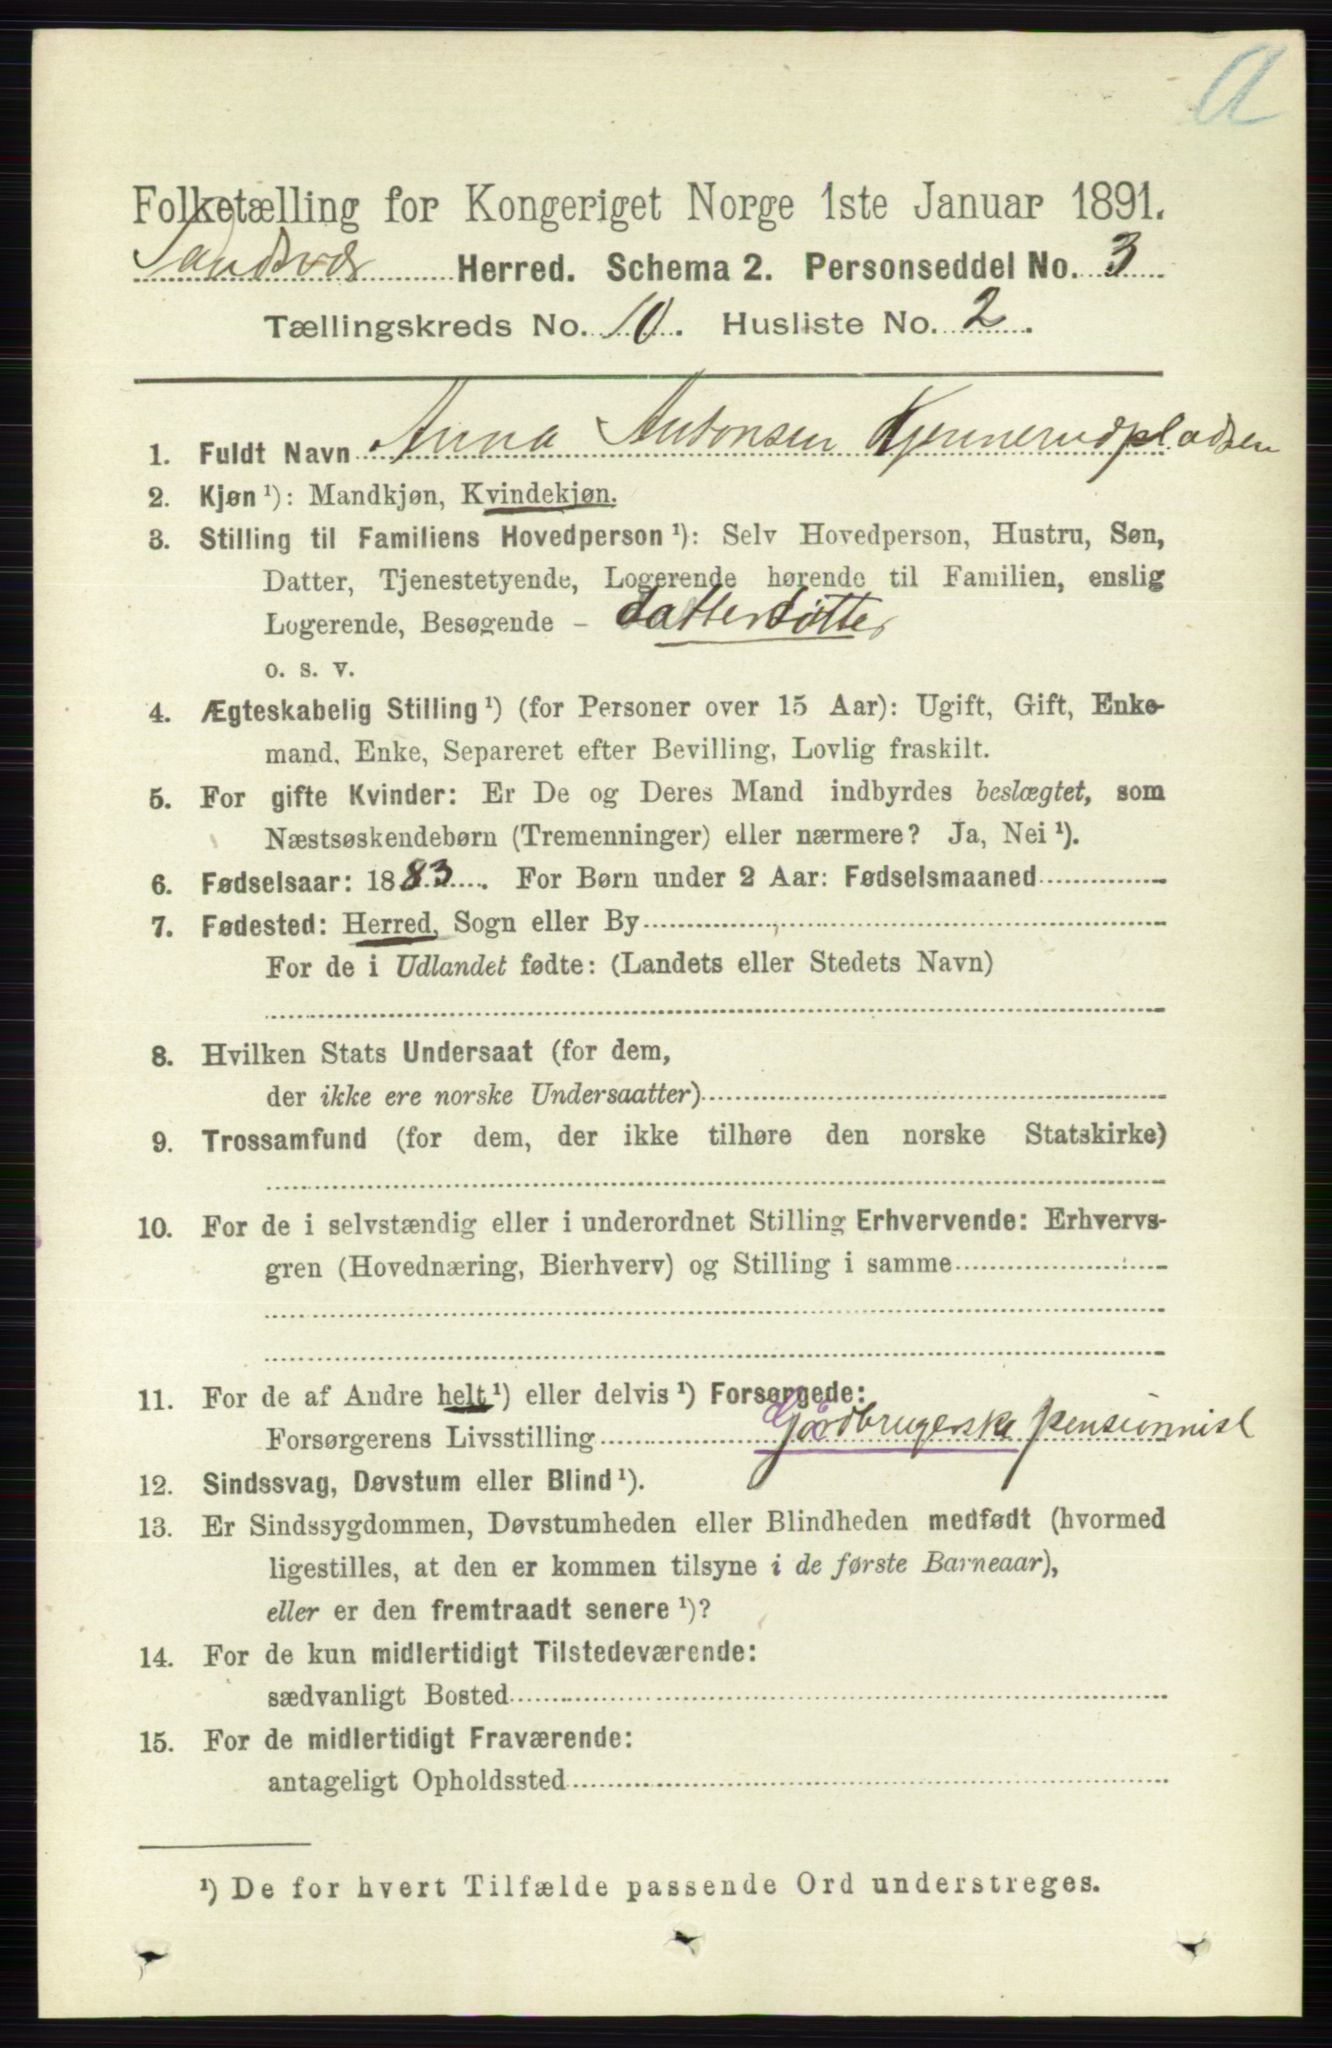 a
Folketælling for Kongeriget Norge 1ste Januar 1891.
Sandsvær Herred. Schema 2. Personseddel No. 3
Tællingskreds No. 10. Husliste No. 2.
1. Fuldt Navn Anna Antonsen Kjennerudpladsen
2. Kjøn ¹): Mandkjøn, Kvindekjøn.
3. Stilling til Familiens Hovedperson ¹): Selv Hovedperson, Hustru, Søn,
Datter, Tjenestetyende, Logerende hørende til Familien, enslig
Logerende, Besøgende - datterdotter
o. s. v.
4. Ægteskabelig Stilling ¹) (for Personer over 15 Aar): Ugift, Gift, Enke-
mand, Enke, Separeret efter Bevilling, Lovlig fraskilt.
5. For gifte Kvinder: Er De og Deres Mand indbyrdes beslægtet, som
Næstsøskendebørn (Tremenninger) eller nærmere? Ja, Nei ¹).
6. Fødselsaar: 1883. For Børn under 2 Aar: Fødselsmaaned
7. Fødested: Herred, Sogn eller By
For de i Udlandet fødte: (Landets eller Stedets Navn)
8. Hvilken Stats Undersaat (for dem,
der ikke ere norske Undersaatter)
9. Trossamfund (for dem, der ikke tilhøre den norske Statskirke)
10. For de i selvstændig eller i underordnet Stilling Erhvervende: Erhvervs-
gren (Hovednæring, Bierhverv) og Stilling i samme
11. For de af Andre helt ¹) eller delvis ¹) Forsørgede:
Forsørgerens Livsstilling Gårdbrugerske pensionnist
12. Sindssvag, Døvstum eller Blind ¹).
13. Er Sindssygdommen, Døvstumheden eller Blindheden medfødt (hvormed
ligestilles, at den er kommen tilsyne i de første Barneaar),
eller er den fremtraadt senere ¹)?
14. For de kun midlertidigt Tilstedeværende:
sædvanligt Bosted
15. For de midlertidigt Fraværende:
antageligt Opholdssted
¹) De for hvert Tilfælde passende Ord understreges.